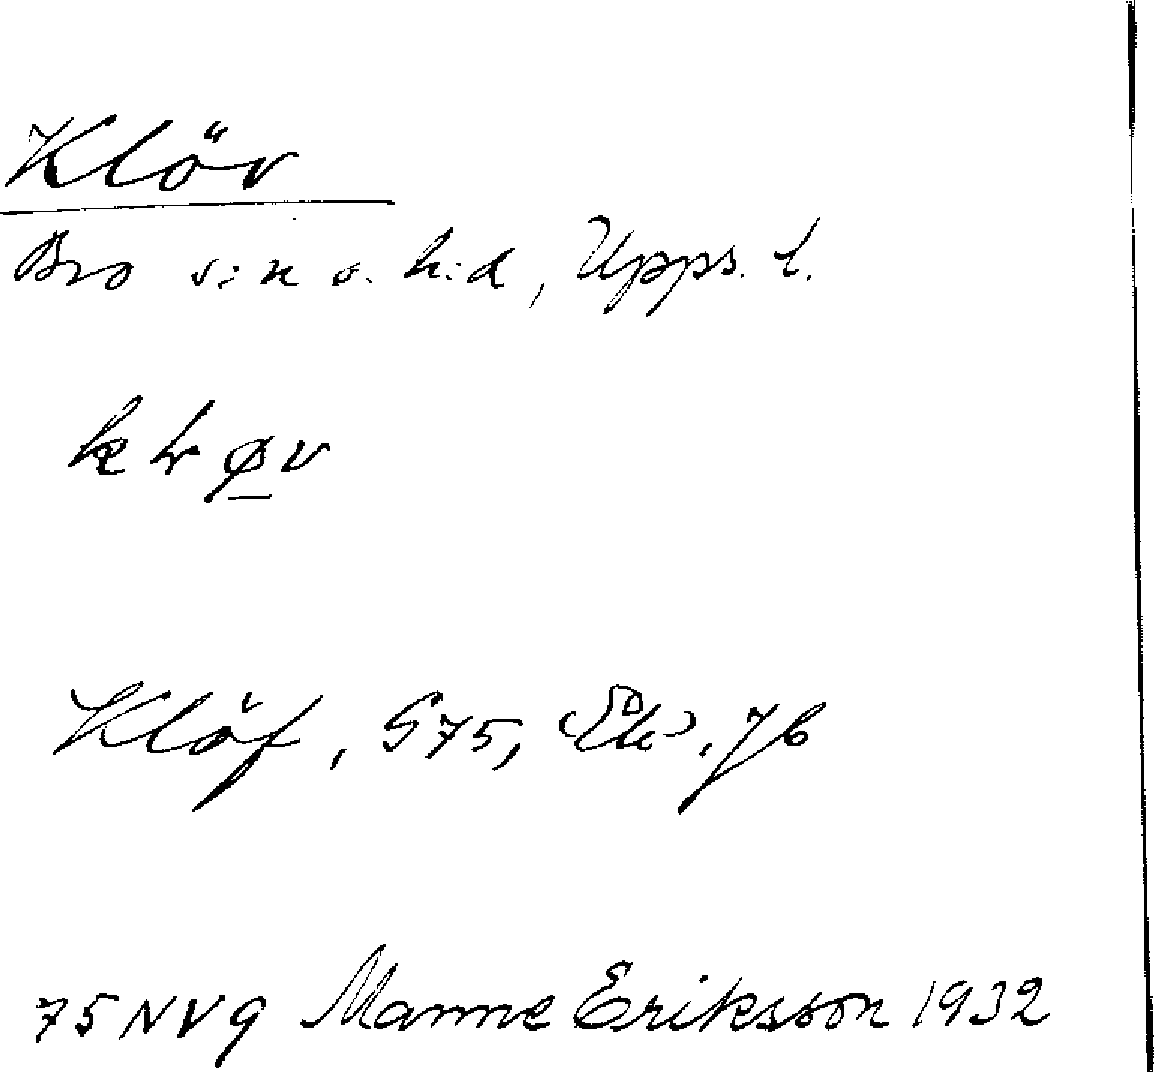 Klöv
Bro s:n o. h:d, Upps. l.
Klöf, S75, Ek, 7b
75 NV 9 Manne Eriksson 1932